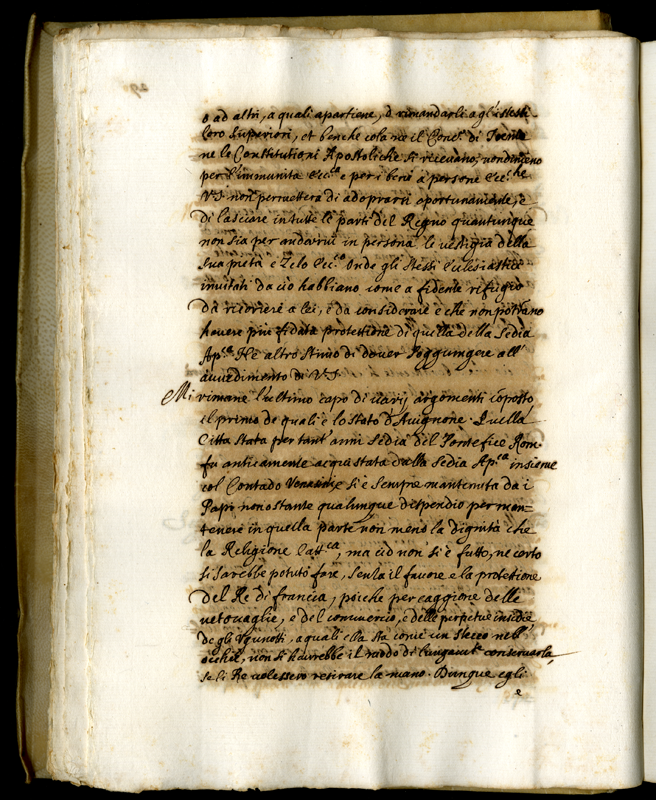 o ad altri, a quali apartiene, ò rimandarli agl'istessi
loro Superiori, et benche colà ne il Conc.º di Trento
ne le Constitutioni Apostoliche si ricevano, nondimeno
per l'immunità Ecc.ª e per i beni à persone Ecc.che
VS non permetterà di adoprarsi oportunamente, e
di lasciare in tutte le parti del Regno quantunque
non sia per andarvi in persona le vestigia della
sua pietà e Zelo Ecc.º Onde gli stessi Eclesiastici
invitati da ciò habbiano come a fidente rifugio
da ricorrere a lei, e da considerare e che non potrano
havere più fidata protettione di quella della Sedia
Ap.ca Nè altro stimo di dover soggiungere all'
avvedimento di VS.
Mi rimane l'ultimo capo di varij argomenti coposto,
il primo de quali è lo stato d'Avignone. Quella
Città stata per tant' anni Sedia del Pontefice Rom.
fu anticamente acquistata dalla Sedia Ap.ca insieme
col Contado Venesino e si è sempre mantenuta da i
Papi nonostante qualunque dispendio per man=
tenere in quella parte non meno la dignità che
la Religione Catt.ca, ma ciò non si è fatto, nè certo
si sarebbe potuto fare, senza il favore e la protettione
del Re di francia, poiche per caggione delle
vetovaglie, e del commercio, e delle perpetue insidie
de gli Vgunotti, a quali ella sta come un stecco nell'
occhii, non si havrebbe il modo di lungam.te conservarla,
se li Re volessero retirare la mano. Dunque egli
e